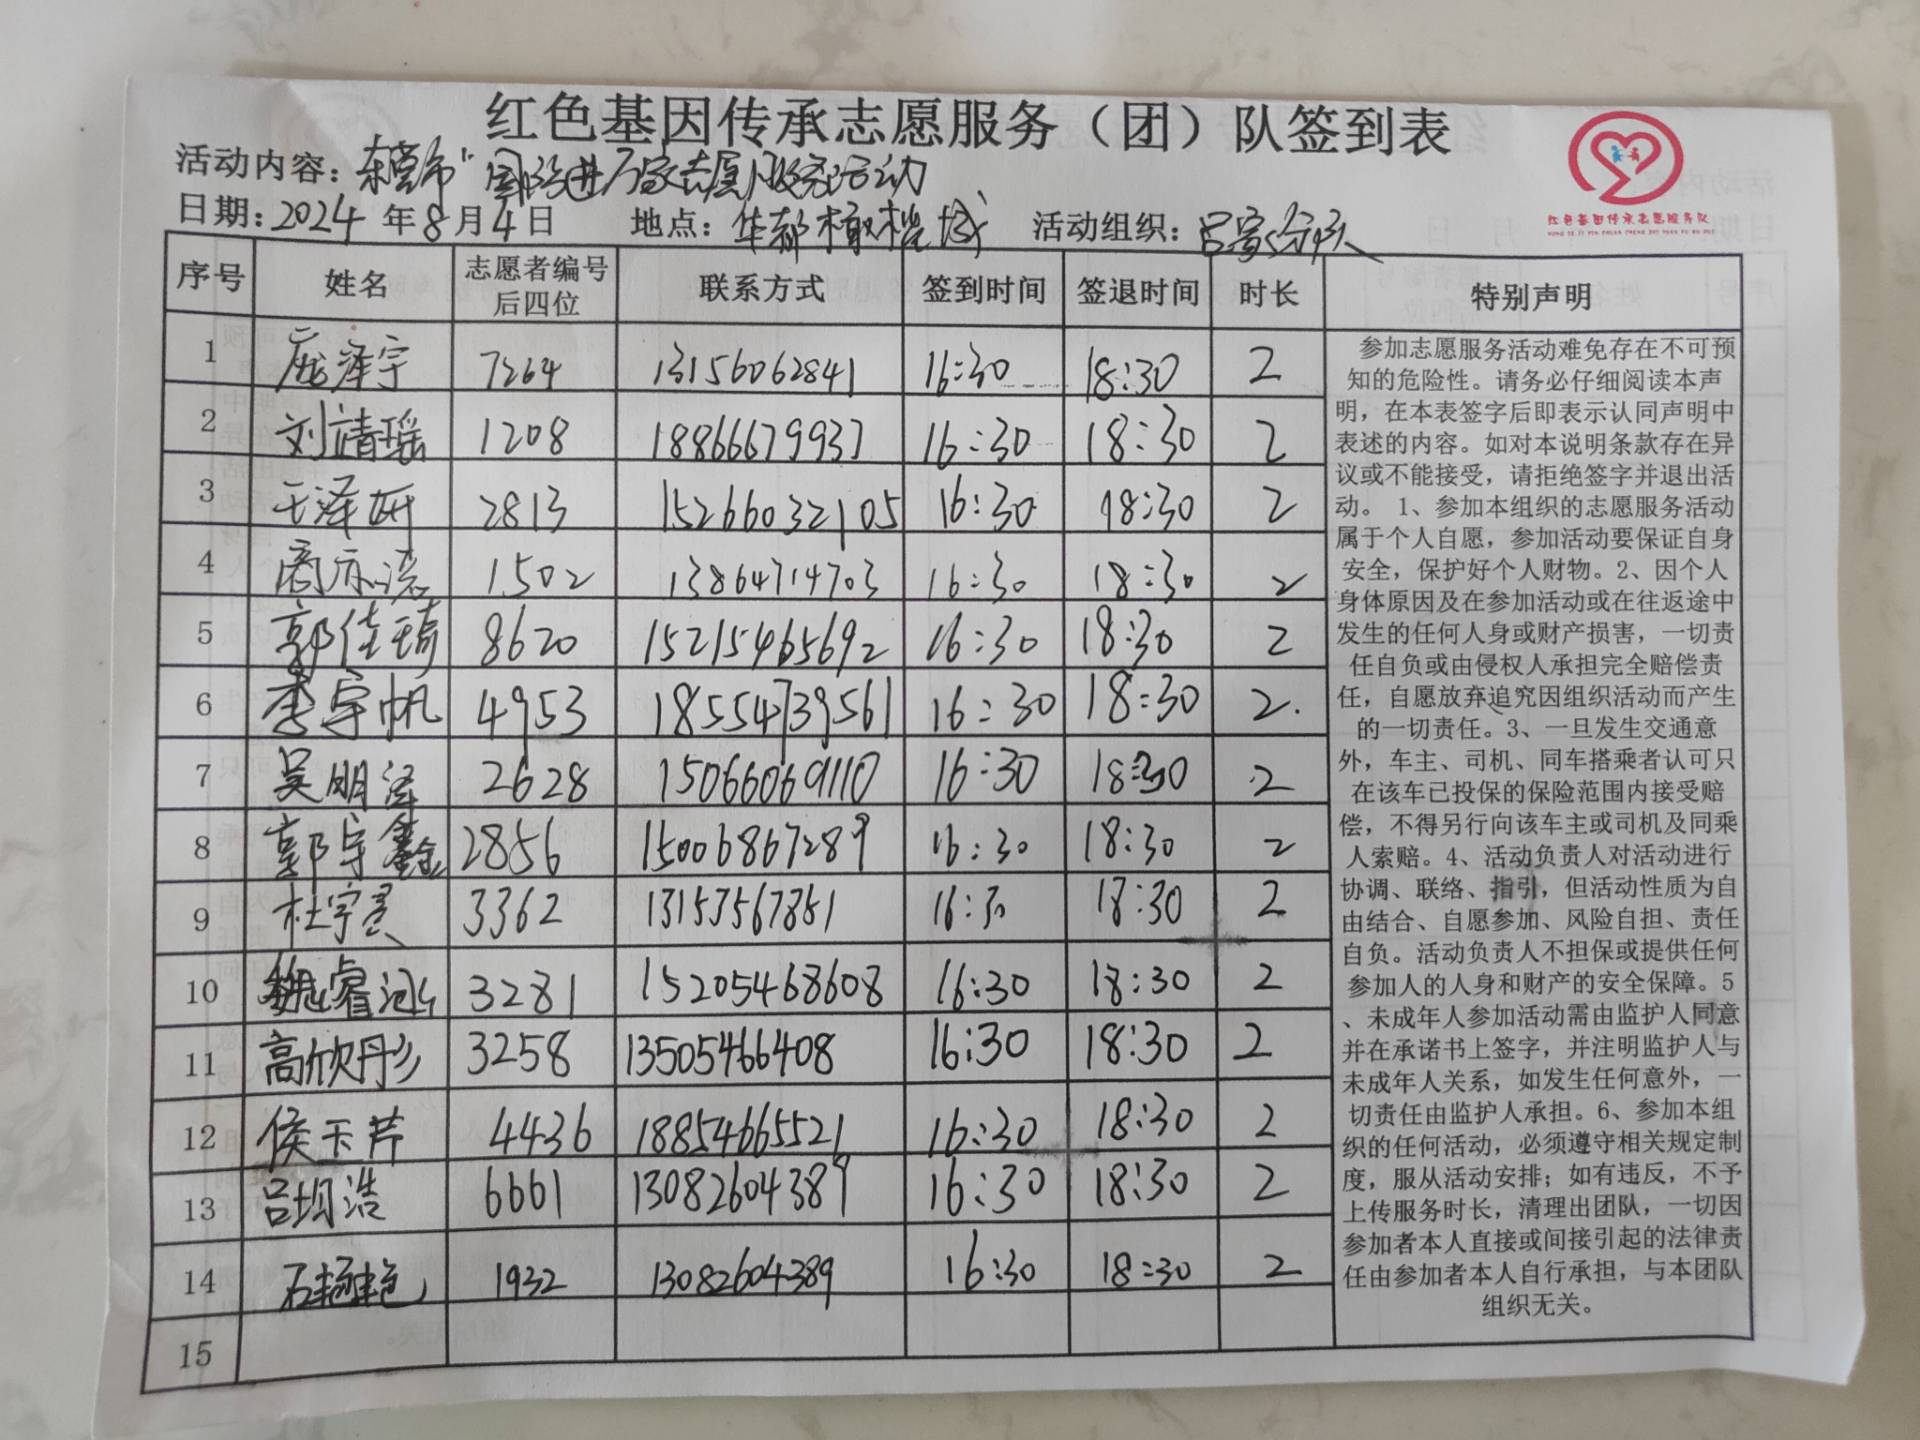 红色基因传承志愿服务（团）队签到表
红色基因传承志愿服务队
活动内容：东营市"国 进万家志愿服务活动
日期：2024年8月4日 地点：华都橄榄城 活动组织：吕 分队
序号 姓名 志愿者编号后四位 联系方式 签到时间 签退时间 时长 特别声明
1 庞泽宇 7264 13156062841 16:30 18:30 2
2 刘靖瑶 1208 18866679937 16:30 18:30 2
3 王泽妍 2813 15266032105 16:30 18:30 2
4 商亦 1502 13864714703 16:30 18:30 2
5 郭佳琦 8620 15215465692 16:30 18:30 2
6 李宇帆 4953 18554739561 16:30 18:30 2.
7 吴明泽 2628 15066069110 16:30 18:30 2
8 郭宇鑫 2856 15006867289 16:30 18:30 2
9 杜宇 3362 13153567851 16:30 18:30 2
10 魏睿 3281 15205468608 16:30 18:30 2
11 高欣彤 3258 13505466408 16:30 18:30 2
12 侯玉芹 4436 18854665521 16:30 18:30 2
13 吕坦浩 6661 13082604389 16:30 18:30 2
14 石艳艳 1932 13082604389 16:30 18:30 2
15
参加志愿服务活动难免存在不可预
知的危险性。请务必仔细阅读本声
明，在本表签字后即表示认同声明中
表述的内容。如对本说明条款存在异
议或不能接受，请拒绝签字并退出活
动。 1、参加本组织的志愿服务活动
属于个人自愿，参加活动要保证自身
安全，保护好个人财物。2、因个人
身体原因及在参加活动或在往返途中
发生的任何人身或财产损害，一切责
任自负或由侵权人承担完全赔偿责
任，自愿放弃追究因组织活动而产生
的一切责任。3、一旦发生交通意
外，车主、司机、同车搭乘者认可只
在该车已投保的保险范围内接受赔
偿，不得另行向该车主或司机及同乘
人索赔。4、活动负责人对活动进行
协调、联络、指引，但活动性质为自
由结合、自愿参加、风险自担、责任
自负。活动负责人不担保或提供任何
参加人的人身和财产的安全保障。5
、未成年人参加活动需由监护人同意
并在承诺书上签字，并注明监护人与
未成年人关系，如发生任何意外，一
切责任由监护人承担。6、参加本组
织的任何活动，必须遵守相关规定制
度，服从活动安排；如有违反，不予
上传服务时长，清理出团队，一切因
参加者本人直接或间接引起的法律责
任由参加者本人自行承担，与本团队
组织无关。